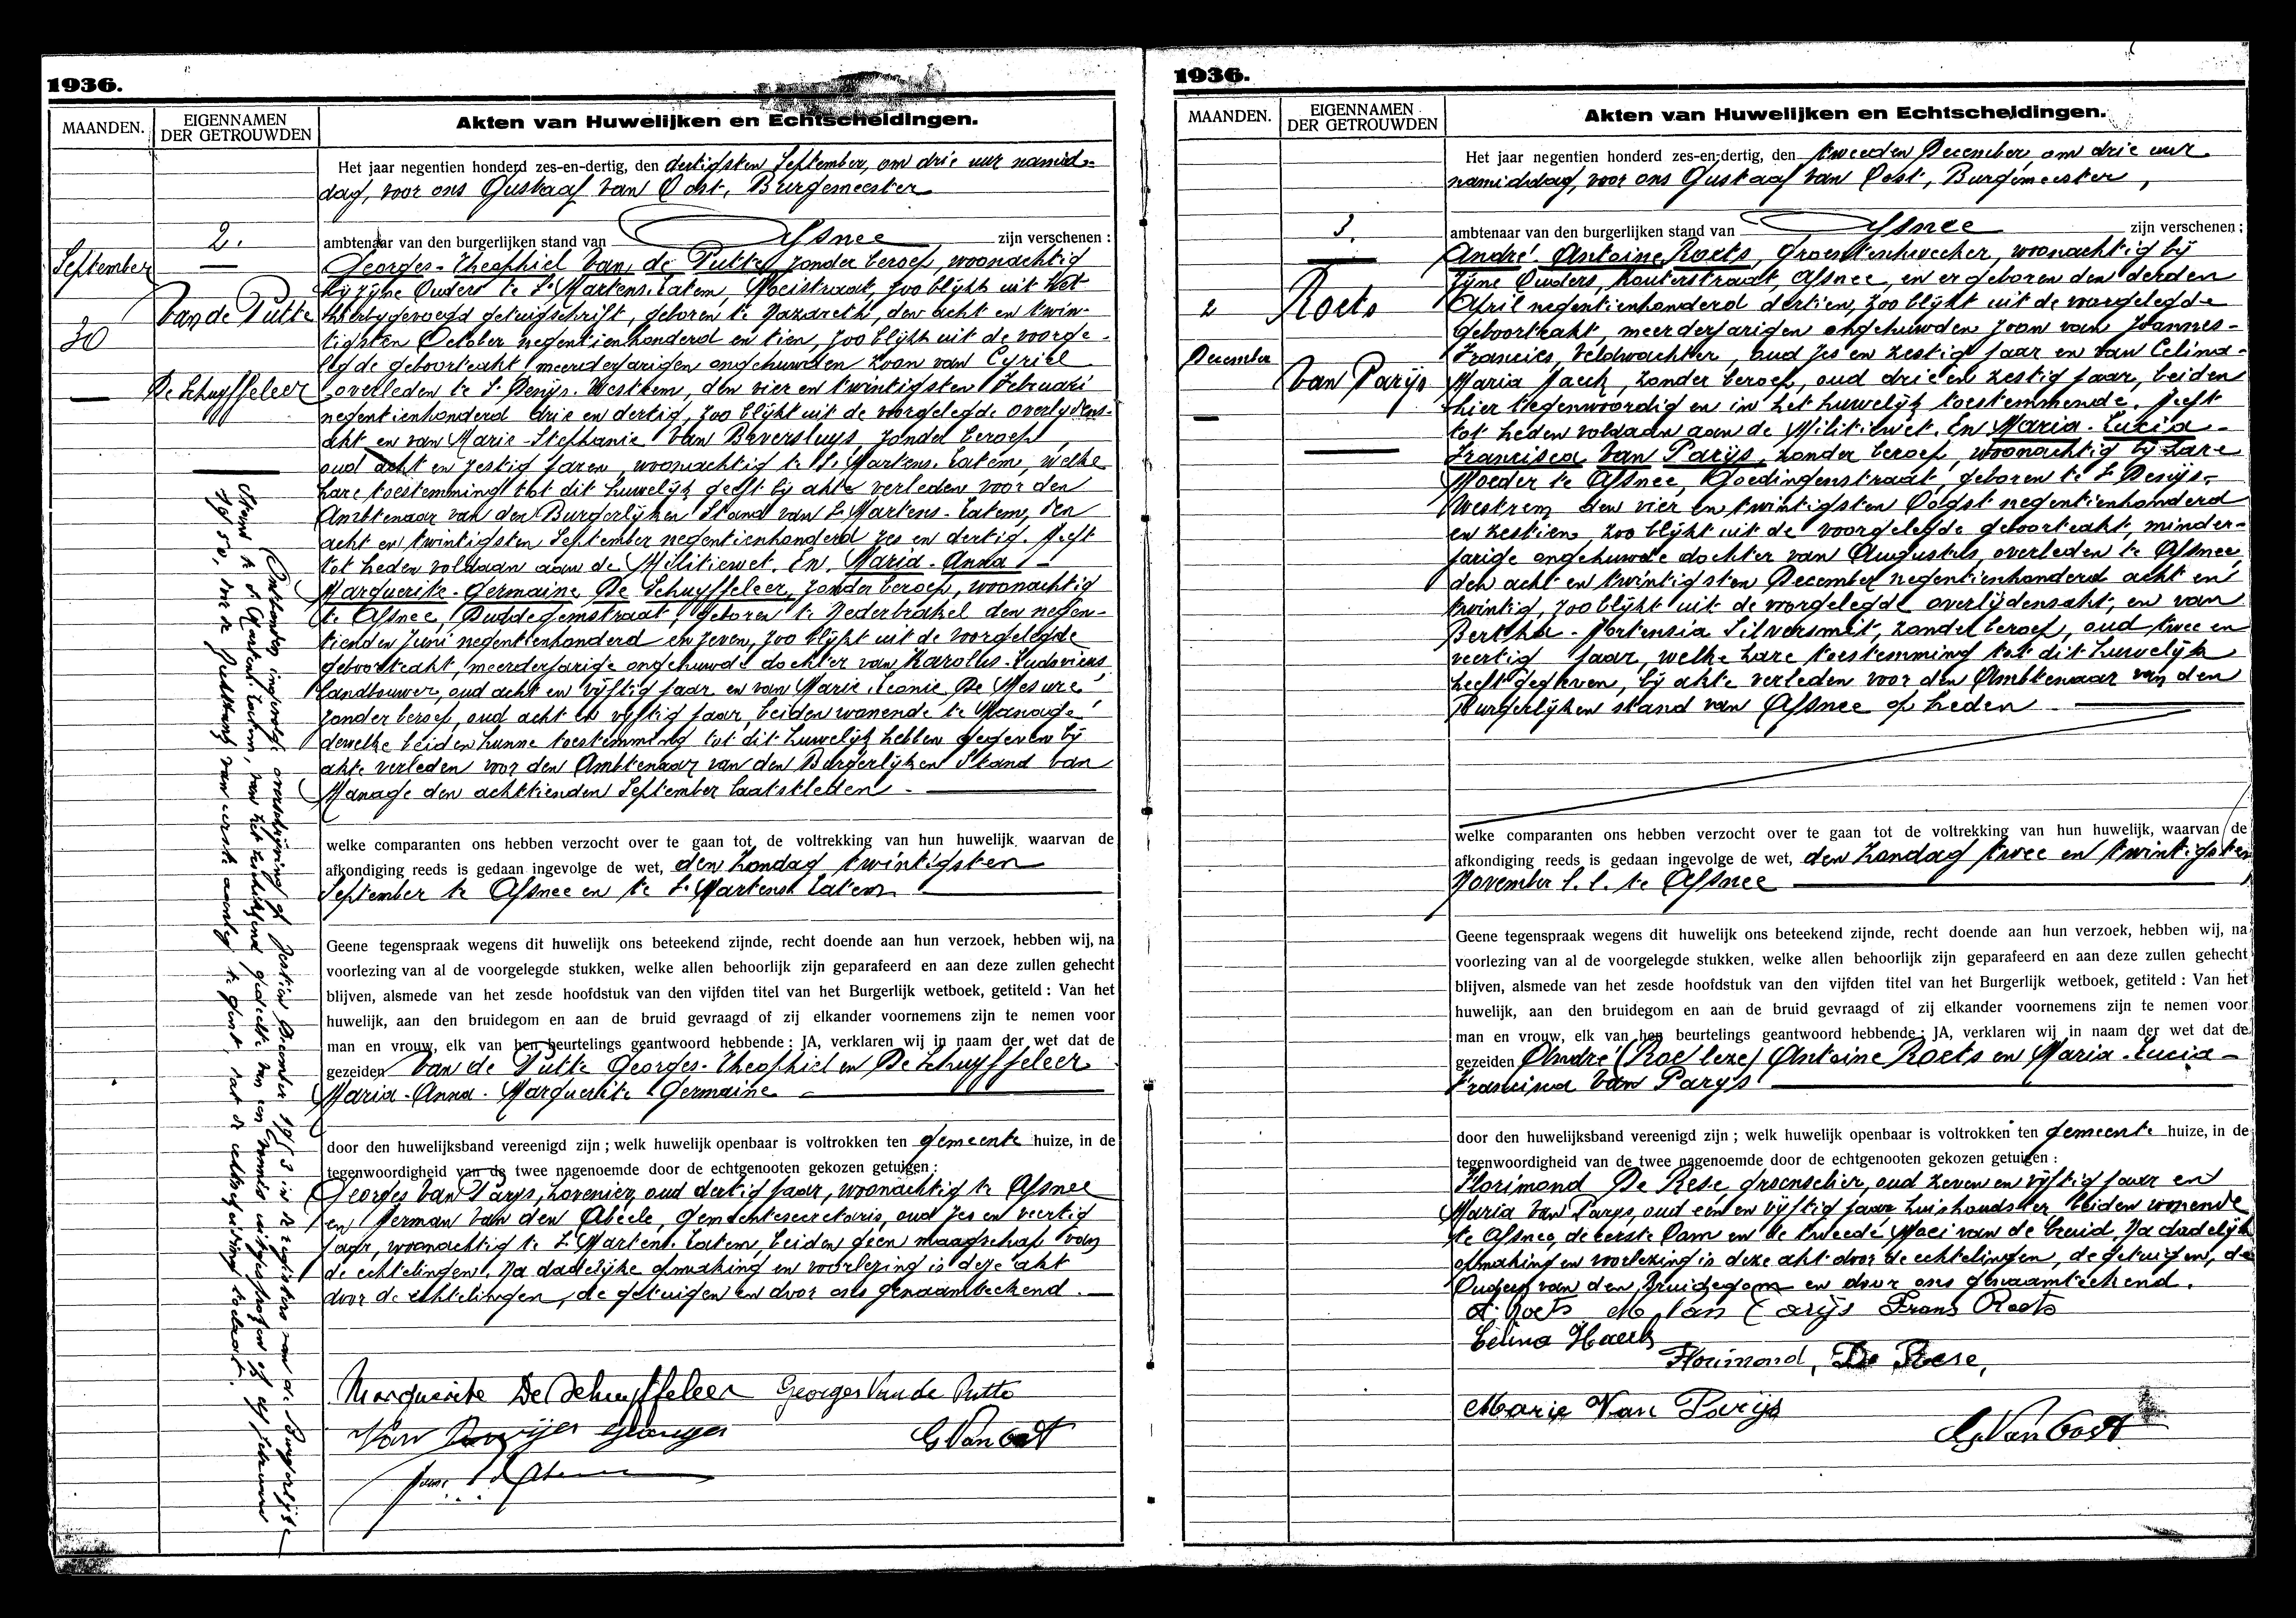 1936.
MAANDEN.
EIGENNAMEN
DER GETROUWDEN
Akten van Huwelijken en Echtscheidingen.
2.
September
30
Van de Putte
De Schuyffeleer
Het jaar negentien honderd zes-en-dertig, den dertigsten September, om drie uur namid-
dag, voor ons Gustaaf Van Oost, Burgemeester
ambtenaar van den burgerlijken stand van Afsnee zijn verschenen :
Georges-Theophiel Van de Putte, zonder beroep, woonachtig
bij zijne Ouders te St Martens-Latem, Moeistraat, zoo blijkt uit het
hierbijgevoegd getuigschrift, geboren te Nazareth, den acht en twin-
tigsten October negentienhonderd en tien, zoo blijkt uit de voorge-
legde geboorteakt, meerderjarigen ongehuwden zoon van Cyriel
overleden te St Denijs-Westrem, den vier en twintigsten Februari
negentienhonderd drie en dertig, zoo blijkt uit de voorgelegde overlydens-
akt en van Marie-Stephanie Van Beversluys, zonder beroep,
oud acht en zestig jaren, woonachtig te St Martens-Latem, welke
hare toestemming tot dit huwelijk geeft bij akte verleden voor den
Ambtenaar van den Burgerlijken Stand van St Martens-Latem, den
acht en twintigsten September negentienhonderd zes en dertig. Heeft
tot heden voldaan aan de Militiewet. En Maria-Anna
Marguerite-Germaine De Schuyffeleer, zonder beroep, woonachtig
te Afsnee, Duddegemstraat, geboren te Nederbrakel den negen-
tienden Juni negentienhonderd en zeven, zoo blijkt uit de voorgelegde
geboorteakt, meerderjarige ongehuwde dochter van Karolus-Ludovicus
landbouwer, oud acht en vijftig jaar en van Marie Leonie De Mesure
zonder beroep, oud acht en vijftig jaar, beiden wonende te Manage
dewelke beiden hunne toestemming tot dit huwelijk hebben gegeven bij
akte verleden voor den Ambtenaar van den Burgerlijken Stand van
Manage den achttienden September laatstleden.
welke comparanten ons hebben verzocht over te gaan tot de voltrekking van hun huwelijk, waarvan de
afkondiging reeds is gedaan ingevolge de wet, den Zondag twintigsten
September te Afsnee en te St Martens Latem
Geene tegenspraak wegens dit huwelijk ons beteekend zijnde, recht doende aan hun verzoek, hebben wij, na
voorlezing van al de voorgelegde stukken, welke allen behoorlijk zijn geparafeerd en aan deze zullen gehecht
blijven, alsmede van het zesde hoofdstuk van den vijfden titel van het Burgerlijk wetboek, getiteld : Van het
huwelijk, aan den bruidegom en aan de bruid gevraagd of zij elkander voornemens zijn te nemen voor
man en vrouw, elk van hen beurtelings geantwoord hebbende : JA, verklaren wij in naam der wet dat de
gezeiden Van de Putte Georges-Theophiel en De Schuyffeleer
Maria-Anna-Marguerite Germaine
door den huwelijksband vereenigd zijn ; welk huwelijk openbaar is voltrokken ten gemeente huize, in de
tegenwoordigheid van de twee nagenoemde door de echtgenooten gekozen getuigen :
Georges Van Parys, hovenier, oud dertig jaar, woonachtig te Afsnee
en Herman Van den Abeele, Gemeentesecretaris, oud zes en veertig
jaar, woonachtig te St Martens Latem, beiden geen maagschap van
de echtelingen. Na dadelijke opmaking en voorlezing is deze akt
door de echtelingen, de getuigen en door ons genaamteekend.
Marguerite De Schuyffeleer Georges Van de Putte
Van Parijs Georges G Van Oost
Ontbonden ingevolge overschrijving op zestien December 1953 in de registers van de Burgerlijke
Stand te St Martens Latem, van het beschikkend gedeelte van een vonnis uitgesproken op
de Rechtbank van eerste aanleg te Gent, dat de echtscheiding toelaat.
1936.
MAANDEN.
EIGENNAMEN
DER GETROUWDEN
Akten van Huwelijken en Echtscheidingen.
3.
2
December
Roets
Van Parijs
Het jaar negentien honderd zes-en-dertig, den tweeden December, om drie uur
namiddag, voor ons Gustaaf Van Oost, Burgemeester,
ambtenaar van den burgerlijken stand van Afsnee zijn verschenen :
André-Antoine Roets, Groentenkweeker, woonachtig bij
zijne Ouders, Kouterstraat, Afsnee, en er geboren den derden
April negentienhonderd dertien, zoo blijkt uit de voorgelegde
geboorteakt, meerderjarigen ongehuwden zoon van Joannes-
Francies, Veldwachter, oud zes en zestig jaar en van Celina-
Maria Haeck, zonder beroep, oud drie en zestig jaar, beiden
hier tegenwoordig en in het huwelijk toestemmende. Heeft
tot heden voldaan aan de Militiewet. En Maria-Lucia-
Francisca Van Parijs, zonder beroep, woonachtig bij hare
Moeder te Afsnee, Goedingenstraat, geboren te St Denijs-
Westrem den vier en twintigsten Oogst negentienhonderd
en zestien, zoo blijkt uit de voorgelegde geboorteakt, minder-
jarige ongehuwde dochter van Augustus, overleden te Afsnee,
den acht en twintigsten December negentienhonderd acht en
twintig, zoo blijkt uit de voorgelegde overlijdensakt, en van
Bertha-Hortensia Silversmit, zonder beroep, oud twee en
veertig jaar, welke hare toestemming tot dit huwelijk
heeft gegeven, bij akte verleden voor den Ambtenaar van den
Burgerlijken stand van Afsnee op heden
welke comparanten ons hebben verzocht over te gaan tot de voltrekking van hun huwelijk, waarvan de
afkondiging reeds is gedaan ingevolge de wet, den Zondag twee en twintigsten
November l.l. te Afsnee
Geene tegenspraak wegens dit huwelijk ons beteekend zijnde, recht doende aan hun verzoek, hebben wij, na
voorlezing van al de voorgelegde stukken, welke allen behoorlijk zijn geparafeerd en aan deze zullen gehecht
blijven, alsmede van het zesde hoofdstuk van den vijfden titel van het Burgerlijk wetboek, getiteld : Van het
huwelijk, aan den bruidegom en aan de bruid gevraagd of zij elkander voornemens zijn te nemen voor
man en vrouw, elk van hen beurtelings geantwoord hebbende : JA, verklaren wij in naam der wet dat de
gezeiden André (Roets leze) Antoine Roets en Maria-Lucia-
Francisca Van Parijs
door den huwelijksband vereenigd zijn ; welk huwelijk openbaar is voltrokken ten gemeente huize, in de
tegenwoordigheid van de twee nagenoemde door de echtgenooten gekozen getuigen :
Florimond De Rese groenselier, oud zeven en vijftig jaar en
Maria Van Parys, oud één en vijftig jaar huishoudster, beiden wonende
te Afsnee, de eerste Oom en de tweede Moei van de bruid. Na dadelijke
opmaking en voorlezing is deze akt door de echtelingen, de getuigen, de
Ouders van den Bruidegom en door ons genaamteekend.
A. Roets M. Van Parijs Frans Roets
Celina Haeck
Florimond, De Rese,
Marie Van Parijs
G. Van Oost